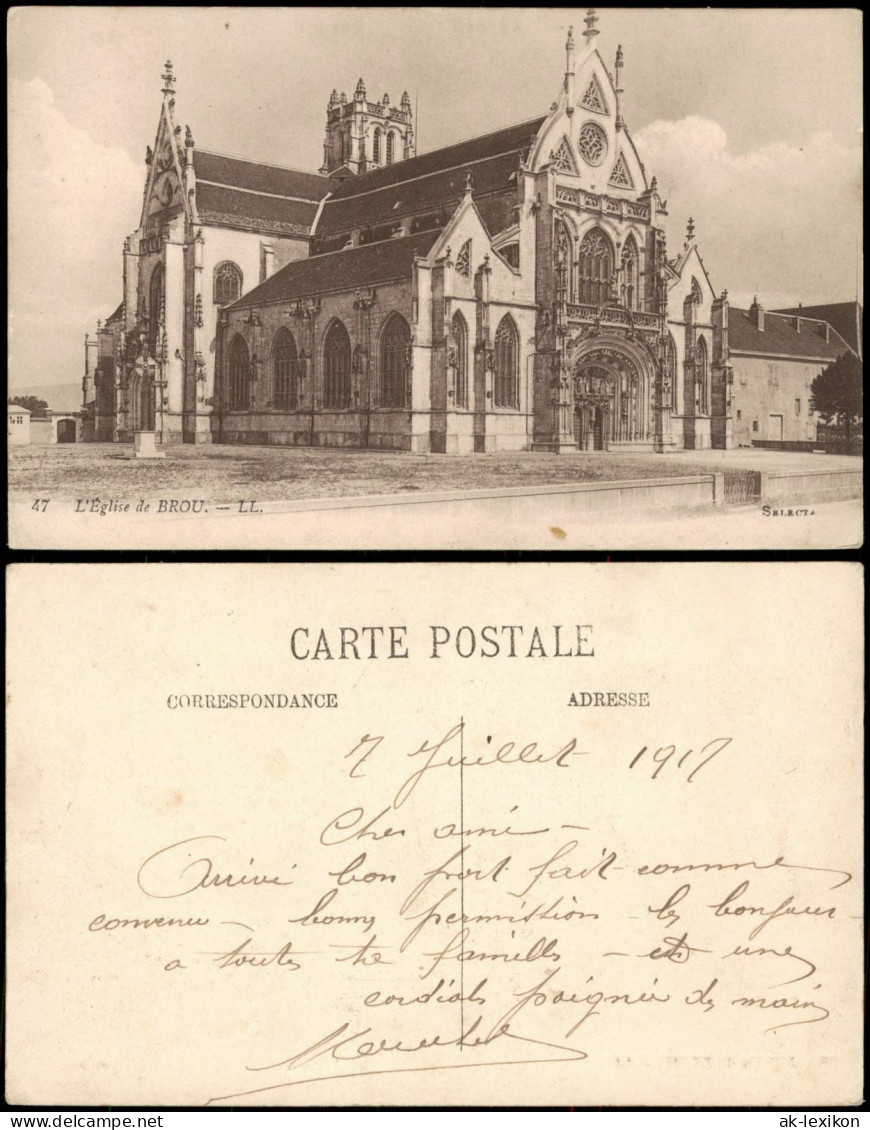 47 L'Église de BROU. — LL.
SELECTA
CARTE POSTALE
CORRESPONDANCE
ADRESSE
7 Juillet 1917
Cher ami —
Arrivé bon port fait comme
convenu — bonne permission — le bonjour
a toute ta famille — et une
cordiale poignée de main
ak-lexikon.com